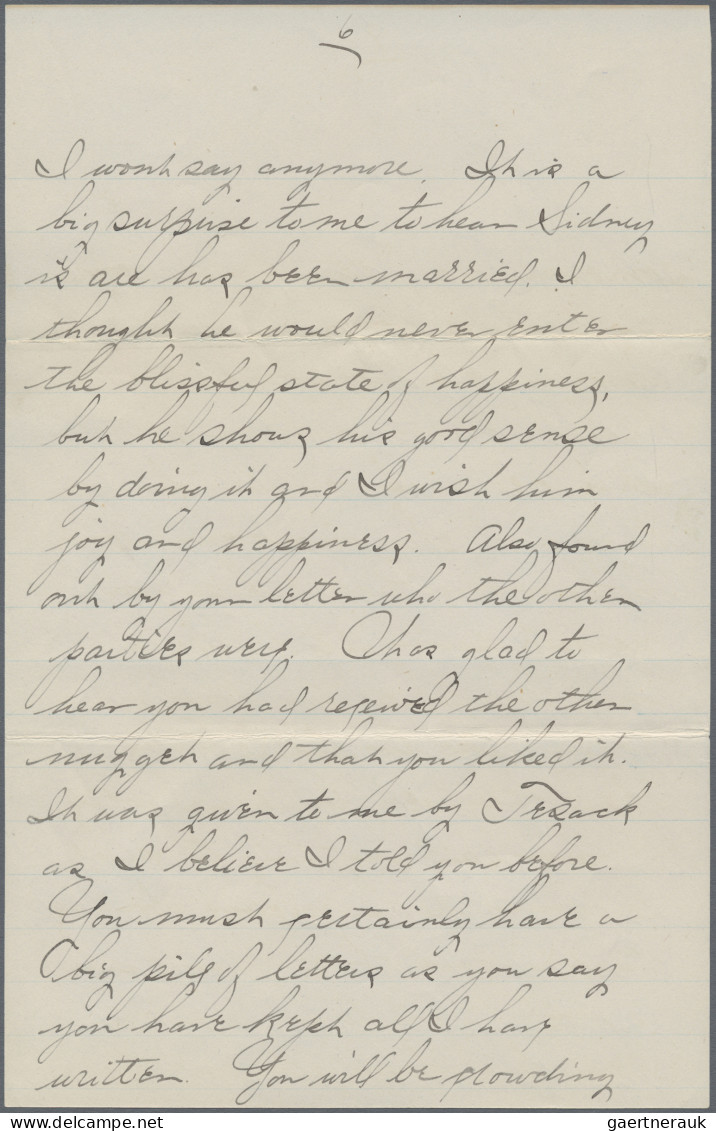 6
I wont say anymore. It is a
big surprise to me to hear Sidney
is are has been married. I
thought he would never enter
the blissful state of happiness,
but he shows his good sense
by doing it and I wish him
joy and happiness. Also found
out by your letter who the other
parties were. Was glad to
hear you had received the other
nugget and that you liked it.
It was given to me by Tesack
as I believe I told you before.
You must certainly have a
big pile of letters as you say
you have kept all I have
written. You will be crowding
gaertnerauk